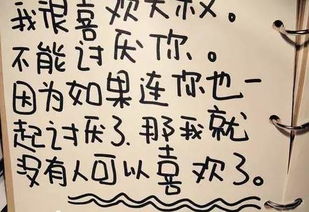 我很喜欢大叔。
不能讨厌你。
因为如果连你也一
起讨厌了.那我就
没有人可以喜欢了。